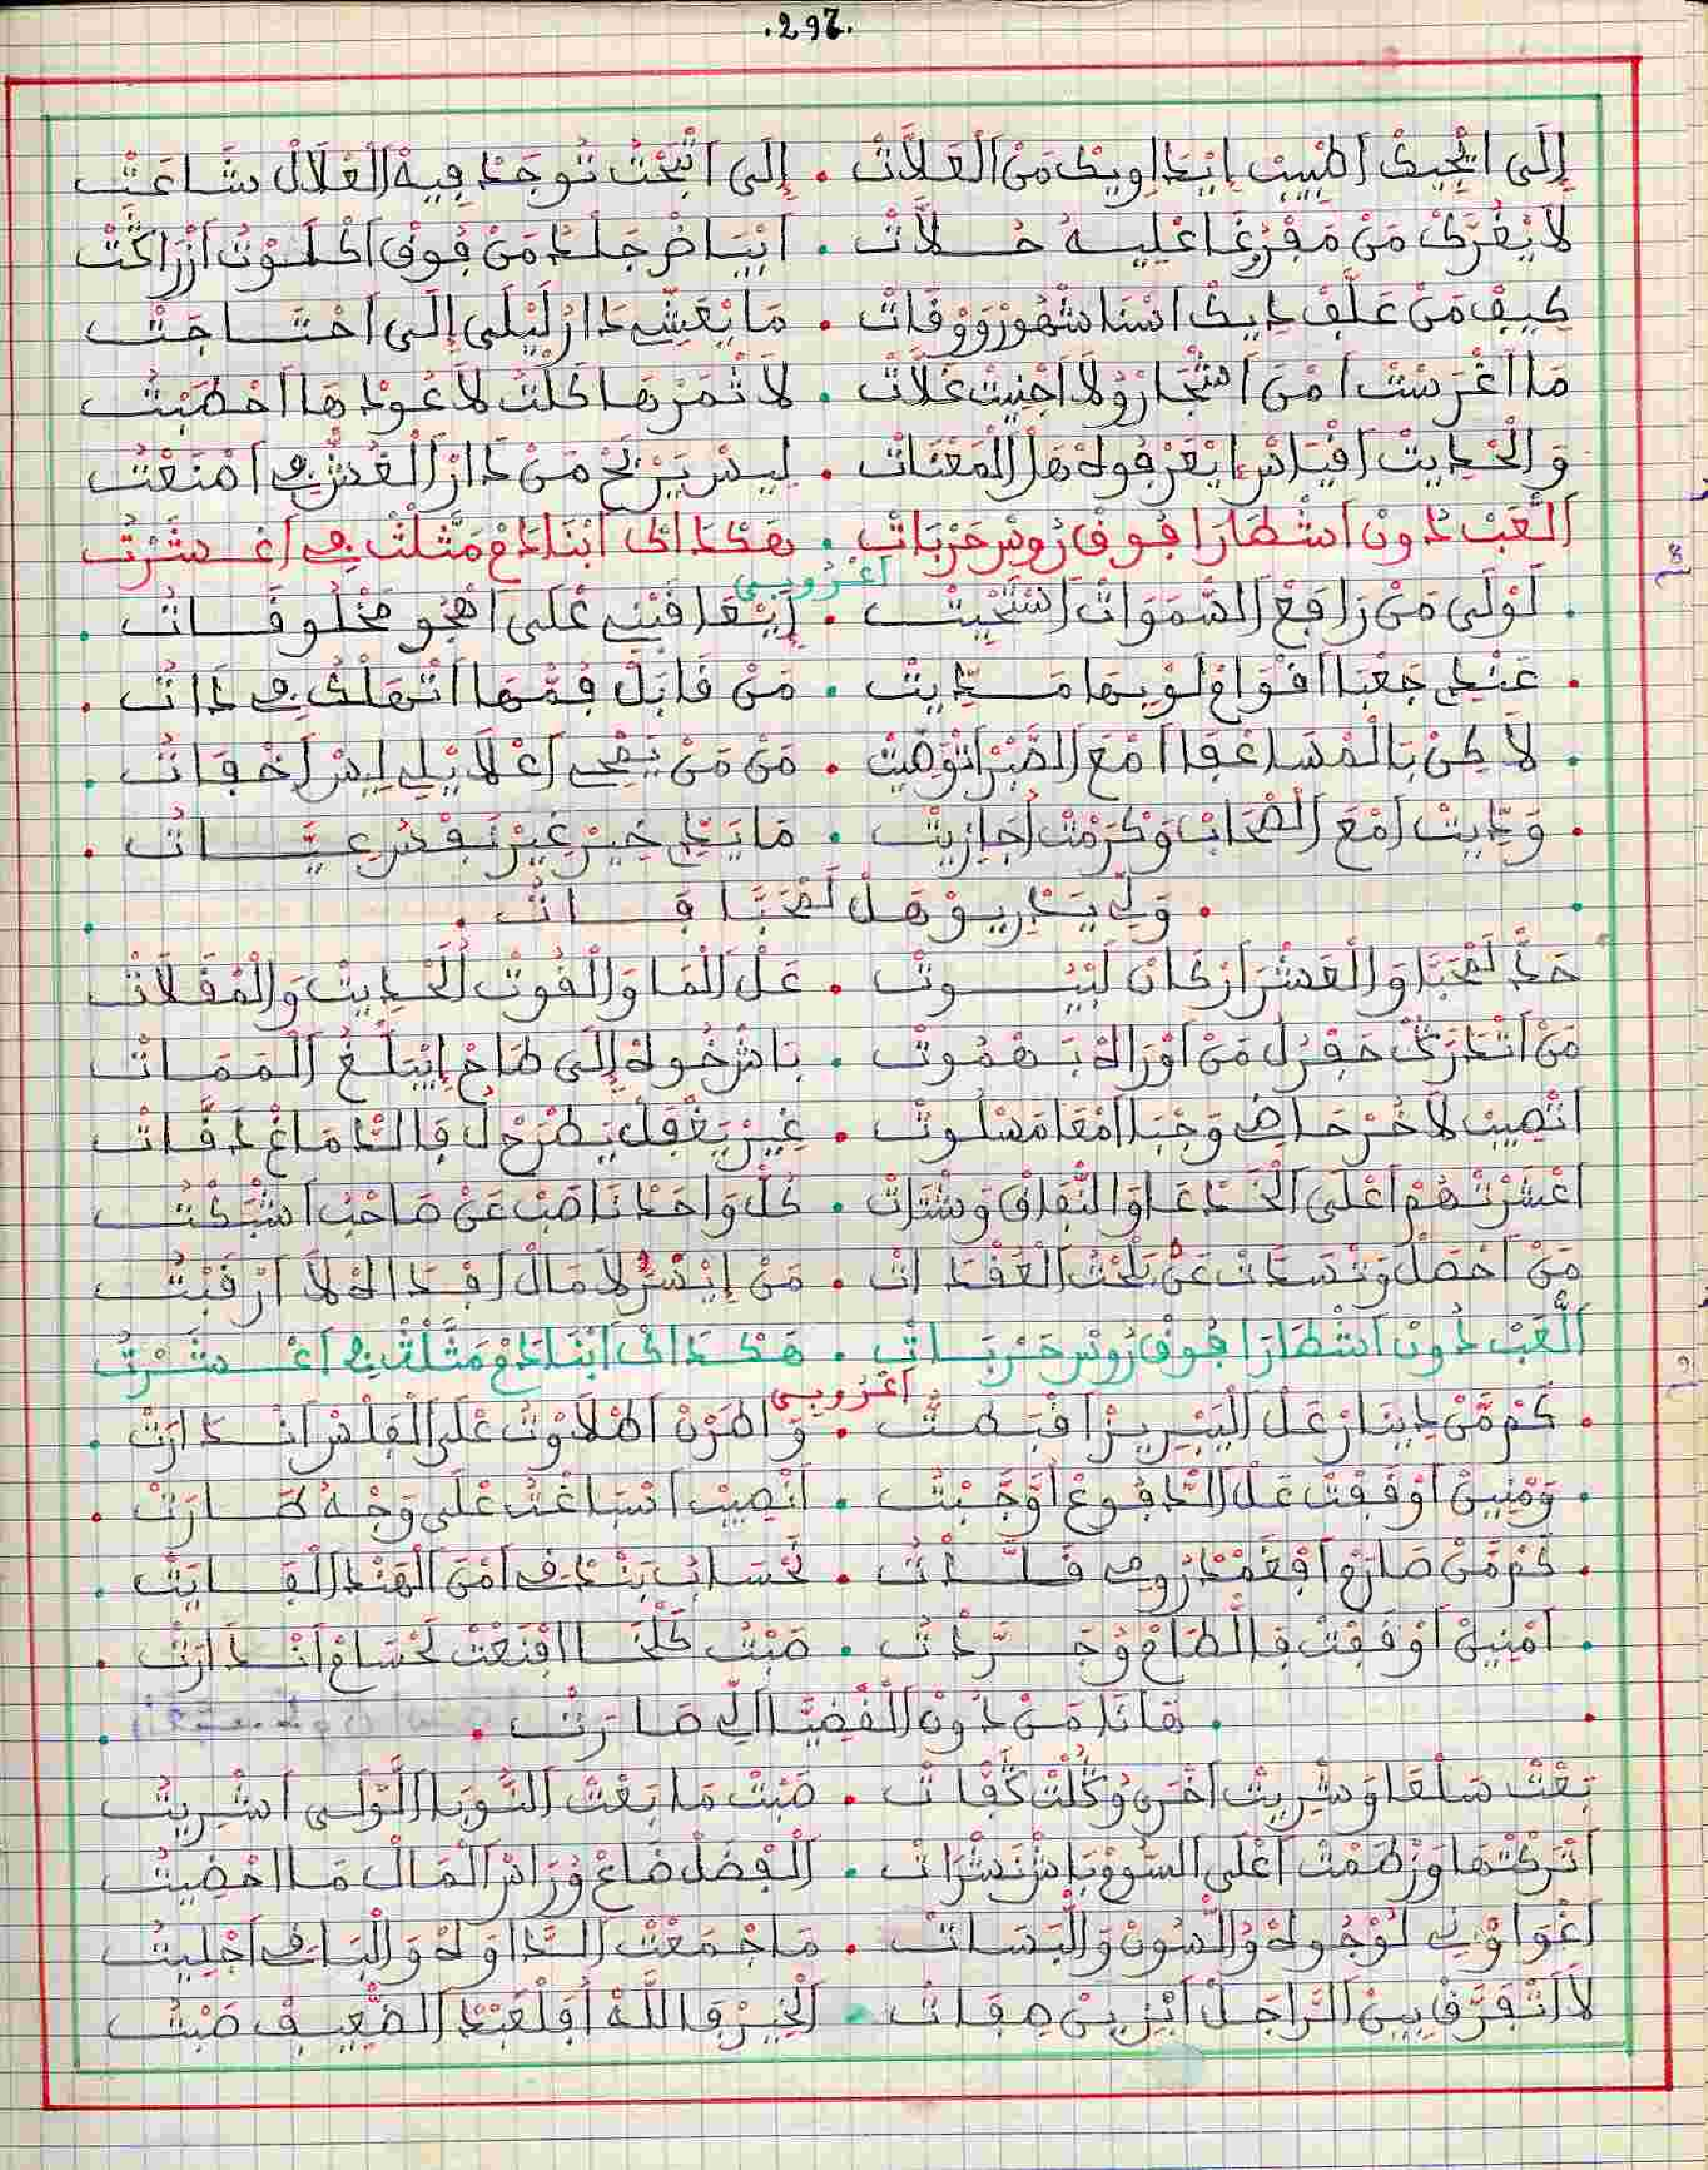 .297.
إِلَى اتْجِيكْ اطْبِيبْ إيْدَاوِيكْ مَنْ الْعَلاَّتْ . إِلَى اتْبْحَثْ تُوجَدْ فِيهْ الْعْلاَلْ سَاعَتْ
لاَ يْغُرَّكْ مَنْ مَفْرُغَا عْلِيهْ حُلاَّتْ . ابْيَاضْ جَلْدُ مَنْ فُوقْ الحْلُوثْ ازْرَاكَتْ
كِيفْ مَنْ عَلَّفْ دِيكْ اسْنَا شْهُورْ وَوْقَاتْ . مَا يْعَشِّي دَارْ لَيْلَى إِلَى احْتَاجَتْ
مَا اغْرَسْتْ امْنَ اشْجَارْ وُلاَ اجْنِيتْ غَلاَّتْ . لاَ ثْمَرْهَا كَلْتُ لاَ عُودْهَا احْطَبْتُ
وَالْحْدِيثْ اقْيَاسْ إيْعَرْفُوهْ هَلْ الْمَعْنَاتْ . لِيسْ يَرْبَحْ مَنْ دَارْ الْغُشّْ فِي امْنَعْتُ
الَّعَبْ دُونْ اشْطَارَا فُوقْ رُوسْ حَرْبَاتْ . هَكْدَاكْ ابْنَادَمْ مَثَّلْتْ فِي اعْشَرْتُ
اعْرُوبِي
. لَوْلَى مَنْ رَافَعْ السَّمَوَاتْ اسْتَحْيِيتْ . إيْعَاقَبْنِي عْلَى اهْجُو مَخْلُوقَاتُ .
. عَنْدِي جَعْبَا اقْوَامْ لَوْ بِهَا سَدِّيتْ . مَنْ قَابَلْ فُمّْهَا اتْهَلْكُ فِي دَاتُ .
. لاَكِنْ بَالْمْسَاعْفَا امْعَ الصّْبَرْ اتْوَصِّيتْ . مَنْ مَنْ يَصْحَى اعْلاَيْلِي لِيسْ اخْفَاتُ .
. وَدِّيتْ امْعَ الصْحَابْ وَكْرَمْتْ اجَازِيتْ . مَا يَدِّي خِيرْ غِيرْ نَفْسُ عِيَّاتُ .
. وَلِّي يَدْرِيوْ هَلْ لَصْحَبَا فَاتُ .
حَدّْ لَصْحَبَا وَالْعَشْرَ ارْكَانْ لَبْيُوتْ . عَلْ الْمَا وَالْقُوتْ الْحْدِيثْ وَالْمُقَلاَتْ
مَنْ اتْدَرَكْ حَفْرْ لُ مَنْ اوْرَاكْ بَهْمُوتْ . بَاشْ خُوكْ إِلَى طَاحْ إيْبَلَّغْ الْمَمَاتْ
انْصِيبْ لاَخُرْ حَاضِي وَجْبَا امْعَا مَسْلُوتْ . غِيرْ يَغْفَلْ يَطْرَحْ لُ فَالدّْمَاغْ دَقَّاتْ
اعْشَرْتْهُمْ اعْلَى الْخْدَعَا وَالنِّفَاقْ وَشْتَاتْ . كُلّْ وَاحَدْ نَاصَبْ عَنْ صَاحْبُ اشْبَكْتُ
مَنْ احْصَلْ وَتْسَدَّاتْ عَنّْ تَحْتْ الْعَقْدَاتْ . مَنْ إيْسَرّْ لاَ مَالْ افْدَاكْ لاَ ارْقَبْتُ
الَّعَبْ دُونْ اشْطَارَا فُوقْ رُوسْ حَرْبَاتْ . هَكْدَاكْ ابْنَادَمْ مَثَّلْتْ فِي اعْشَرْتُ
اعْرُوبِي
. كَمْ مَنْ دِينَارْ عَلْ الْبِيرِيزْ اقْبَطْتُ . وَاطَرْنْ اطْلاَوْتُ عْلَى الْفِلْسْ انْدَارَتْ .
. وَمْنِينْ اوْقَفْتْ عَلْ الدّْفُوعْ اوَجَّبْتُ . انْصِيبْ اسْبَاغْتُ عْلَى وَجْهُ طَارَتْ .
. كَمْ مَنْ صَارَمْ افْغَمْدْ رُومِي قَلَّدْتُ . نَحْسَابُ بَنْدَقِي امْنَ الْهَنْدْ الْفَايَتْ .
. امْنِينْ اوْقَفْتْ فَالطَّامْ وُجَرَّدْتُ . صَبْتُ كَلْخَا اقْنَعْتْ لَحْسَامْ انْدَارَتْ .
. هَانَا مَنْ دُونْ الْقْضِيَّا الِّي صَارَتْ .
بَعْتْ سَلْعَا وَشْرِيتْ اخْرَى وُكُلْتْ كَفَّاتْ . صَبْتْ مَا بَعْتْ النُّوبَا الَّوْلَى اشْرِيتُ
اتْرَكْتْهَا وَزْطَمْتْ اعْلَى السُّوقْ بَاشْ نَشْرَاتْ . الْفْضَلْ ضَاعْ وُرَاسْ الْمَالْ مَا احْضِيتُ
اغْوَاوْنِي لُوْجُوهْ وُالسُّونْ وَالْبَسَاتْ . مَا جْمَعْتْ الدَّاوَهْ وَالْبَاقِي اجْلِيتُ
لاَ اتْفَرَّقْ بِينْ الرَّاجَلْ ابْزِينْ صِفَاتُ . الْخِيرْ فَاللَّهْ افْلَعْبَدْ الضْعِيفْ صَبْتُ